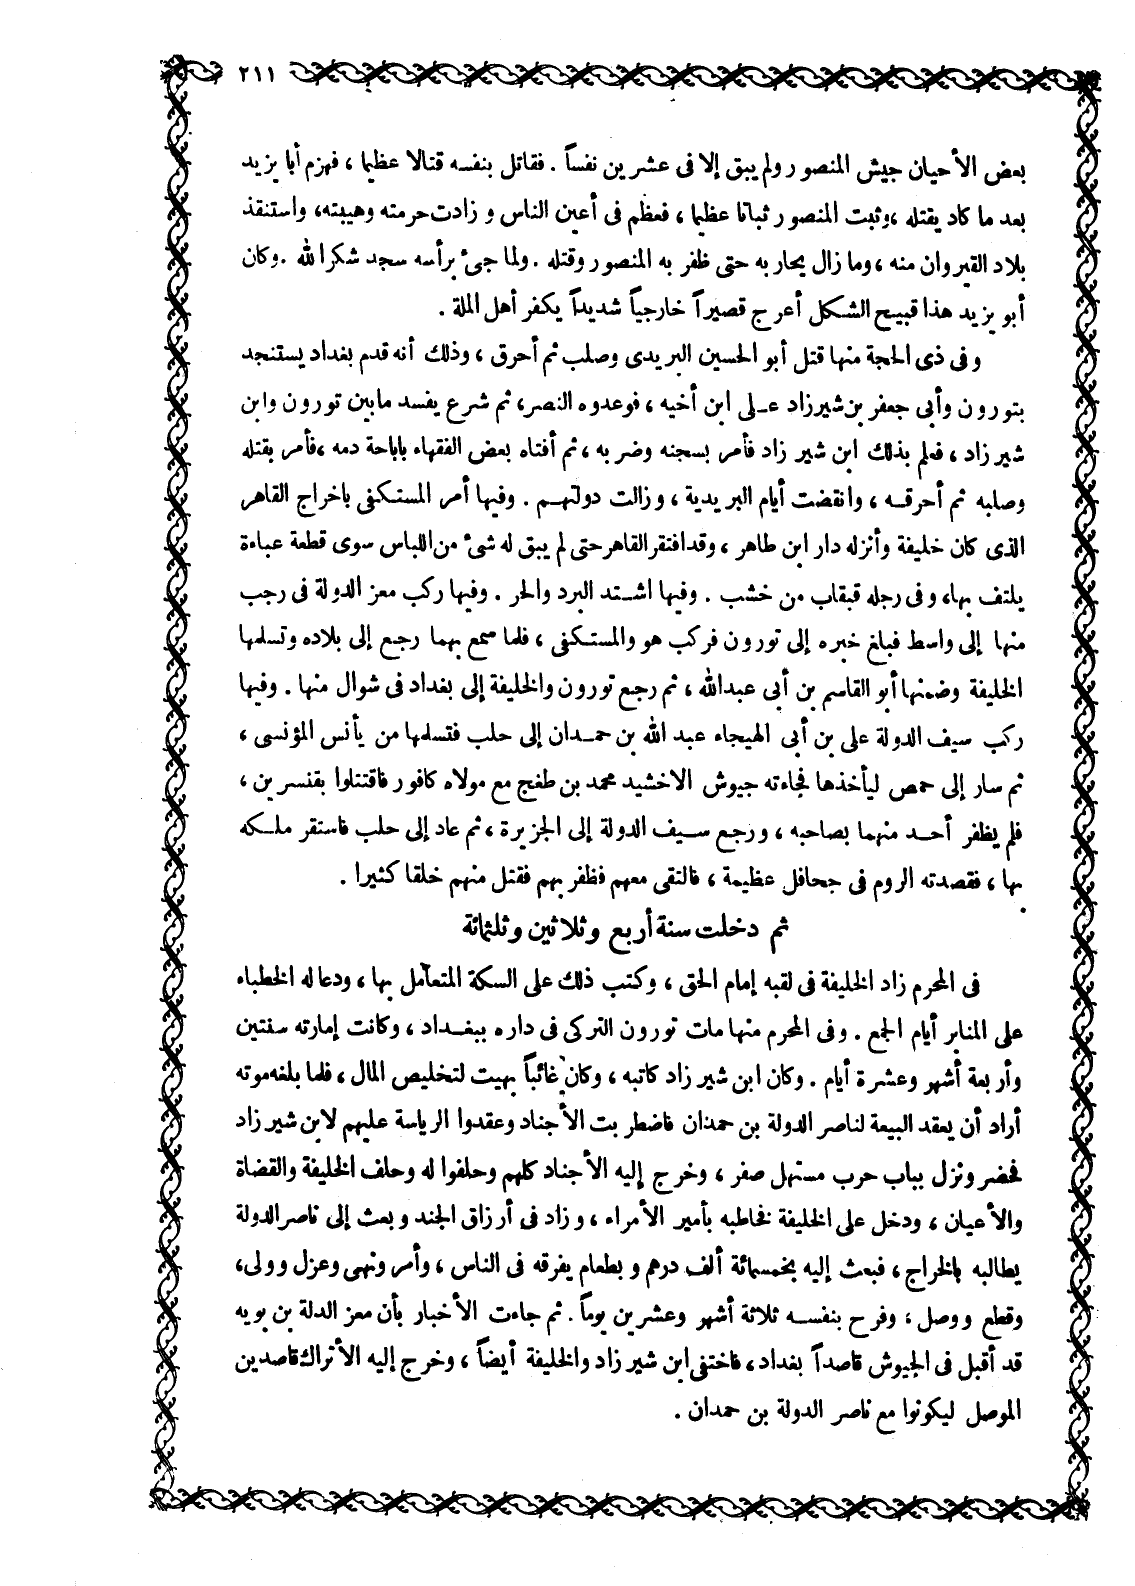 ٢١١
بعض الأحيان جيش المنصور ولم يبق إلا فى عشرين نفساً . فقاتل بنفسه قتالا عظيما ، فهزم أبا يزيد
بعد ما كاد يقتله ، وثبت المنصور ثباتا عظيما ، فعظم فى أعين الناس وزادت حرمته وهيبته ، واستنقذ
بلاد القيروان منه ، وما زال يحاربه حتى ظفر به المنصور وقتله . ولما جئ برأسه سجد شكرا لله . وكان
أبو يزيد هذا قبيح الشكل أعرج قصيراً خارجياً شديداً يكفر أهل الملة .
وفى ذى الحجة منها قتل أبو الحسين البريدى وصلب ثم أحرق ، وذلك أنه قدم بغداد يستنجد
بتورون وأبى جعفر بن شيرزاد على ابن أخيه ، فوعدوه النصر ، ثم شرع يفسد مابين تورون وابن
شيرزاد ، فعلم بذلك ابن شير زاد فأمر بسجنه وضربه ، ثم أفتاه بعض الفقهاء باباحة دمه ، فأمر بقتله
وصلبه ثم أحرقه ، وانقضت أيام البريدية ، وزالت دولتهم . وفيها أمر المستكفى باخراج القاهر
الذى كان خليفة وأنزله دار ابن طاهر ، وقد افتقر القاهر حتى لم يبق له شئ من اللباس سوى قطعة عباءة
يلتف بها ، وفى رجله قبقاب من خشب . وفيها اشتد البرد والحر . وفيها ركب معز الدولة فى رجب
منها إلى واسط فبلغ خبره إلى تورون فركب هو والمستكفى ، فلما سمع بهما رجع إلى بلاده وتسلمها
الخليفة وضمنها أبو القاسم بن أبى عبدالله ، ثم رجع تورون والخليفة إلى بغداد فى شوال منها . وفيها
ركب سيف الدولة على بن أبى الهيجاء عبد الله بن حمدان إلى حلب فتسلمها من يأنس المؤنسى ،
ثم سار إلى حمص ليأخذها فجاءته جيوش الاخشيد محمد بن طغج مع مولاه كافور فاقتتلوا بقنسرين ،
فلم يظفر أحد منهما بصاحبه ، ورجع سيف الدولة إلى الجزيرة ، ثم عاد إلى حلب فاستقر ملكه
بها ، فقصدته الروم فى جحافل عظيمة ، فالتقى معهم فظفر بهم فقتل منهم خلقا كثيرا .
ثم دخلت سنة أربع وثلاثين وثلثمائة
فى المحرم زاد الخليفة فى لقبه إمام الحق ، وكتب ذلك على السكة المتعامل بها ، ودعا له الخطباء
على المنابر أيام الجمع . وفى المحرم منها مات تورون التركى فى داره ببغداد ، وكانت إمارته سنتين
وأربعة أشهر وعشرة أيام . وكان ابن شير زاد كاتبه ، وكان غائباً بهيت لتخليص المال ، فلما بلغه موته
أراد أن يعقد البيعة لناصر الدولة بن حمدان فاضطربت الأجناد وعقدوا الرياسة عليهم لابن شير زاد
فحضر ونزل بباب حرب مستهل صفر ، وخرج إليه الأجناد كلهم وحلفوا له وحلف الخليفة والقضاة
والأعيان ، ودخل على الخليفة فخاطبه بأمير الأمراء ، وزاد فى أرزاق الجند وبعث إلى ناصر الدولة
يطالبه بالخراج ، فبعث إليه بخمسمائة ألف درهم وبطعام يفرقه فى الناس ، وأمر ونهى وعزل وولى ،
وقطع ووصل ، وفرح بنفسه ثلاثة أشهر وعشرين يوماً . ثم جاءت الأخبار بأن معز الدلة بن بويه
قد أقبل فى الجيوش قاصداً بغداد ، فاختفى ابن شير زاد والخليفة أيضاً ، وخرج إليه الأتراك قاصدين
الموصل ليكونوا مع ناصر الدولة بن حمدان .